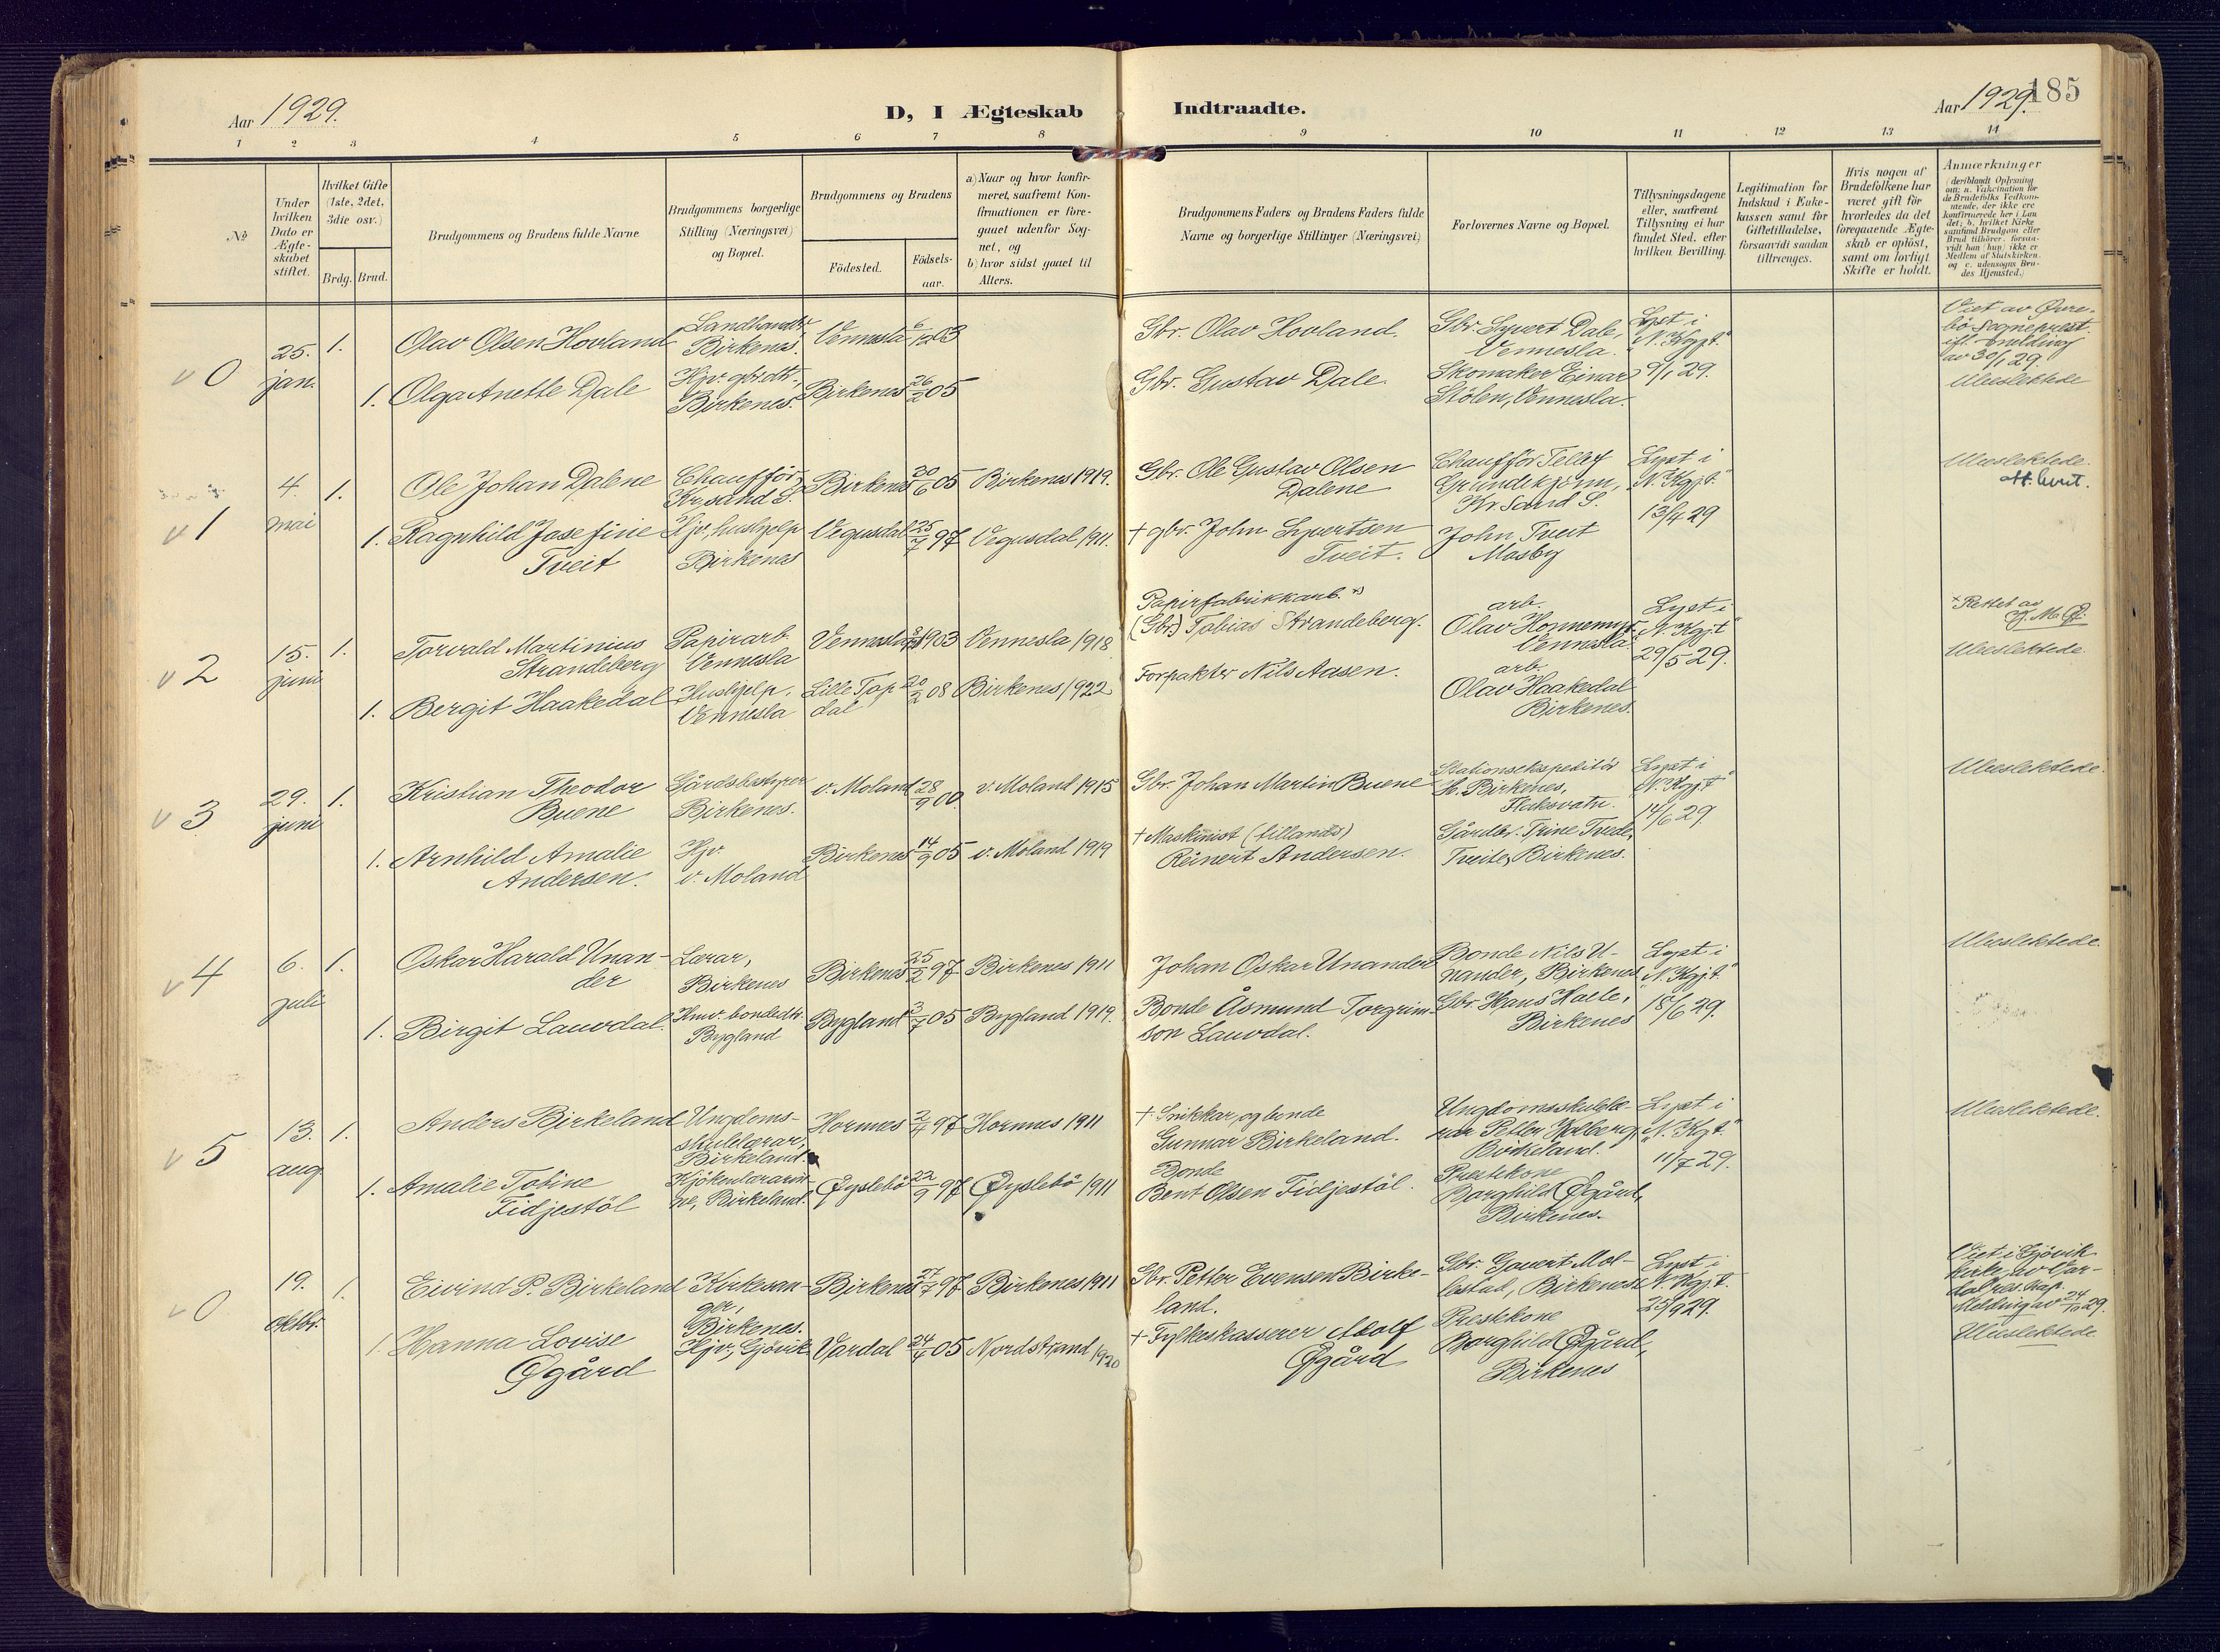 Aar 1929.
D, I Ægteskab
Indtraadte.
Aar 1929.
185
1 2 3 4 5 6 7 8 9 10 11 12 13 14
No
Under hvilken Dato er Ægteskabet stiftet.
Hvilket Gifte (1ste, 2det, 3die osv.)
Brdg. Brud.
Brudgommens og Brudens fulde Navne
Brudgommens borgerlige Stilling (Næringsvei) og Bopæl.
Brudgommens og Brudens
Födested.
Födsels-aar.
a) Naar og hvor konfirmeret, saafremt Konfirmationen er foregaaet udenfor Sognet, og
b) hvor sidst gaaet til Alters.
Brudgommens Faders og Brudens Faders fulde Navne og borgerlige Stillinger (Næringsvei)
Forlovernes Navne og Bopæl.
Tillysningsdagene eller, saafremt Tillysning ei har fundet Sted, efter hvilken Bevilling.
Legitimation for Indskud i Enkekassen samt for Giftetilladelse, forsaavidt saadan tiltrænges.
Hvis nogen af Brudefolkene har været gift för hvorledes da det foregaaende Ægteskab er oplöst, samt om lovligt Skifte er holdt.
Anmærkninger
(deriblandt Oplysning om: a. Vakcination for de Brudefolks Vedkommende, der ikke ere konfirmerede her i Landet; b. hvilket Kirkesamfund Brudgom eller Brud tilhörer, forsaavidt han (hun) ikke er Medlem af Statskirken, og c. udensogns Brudes Hjemsted.)
v 0
25. jan.
1. Olav Olsen Hovland
Landhandlr. Birkenes.
Vennesla 6/12 03
Gbr. Olav Hovland.
Gbr. Syvert Dale, Vennesla.
Lyst i "N. Kgjt." 9/1 29.
Viet av Øvrebö sogneprest ifl. melding av 30/1 29.
Ubeslektede
1. Olga Anette Dale
Hjv. gbrdtr. Birkenes.
Birkenes 26/2 05
Gbr. Gustav Dale.
Skomaker Einar Stölen, Vennesla.
v 1
4. mai
1. Ole Johan Dalene
Chaufför, Kr.sand S.
Birkenes 20/6 05
Birkenes 1919.
Gbr. Ole Gustav Olsen Dalene
Chaufför Tellef Grundekjönn, Kr. Sand S.
Lyst i "N. Kgjt." 13/4 29
Ubeslektede.
1. Ragnhild Josefine Tveit
Hjv., hushjelp Birkenes
Vegusdal 25/7 97
Vegusdal 1911.
+ gbr. John Syvertsen Tveit.
John Tveit Mosby
v 2
15. juni
1. Torvald Martinius Strandeberg
Papirarb. Vennesla
Vennesla 1903
Vennesla 1918
Papirfabrikkarb. x)
(Gbr.) Tobias Strandeberg.
arb. Olav Honnemyr, Vennesla.
Lyst i "N. Kgjt" 29/5 29.
x Rettet av
Ubeslektede
1. Bergit Haakedal
Hushjelp, Vennesla
Lille Topdal 20/2 08
Birkenes 1922
Forpakter Nils Aasen.
arb. Olav Haakedal Birkenes.
v 3
29. juni
1. Kristian Theodor Buene
Gårdsbestyrer Birkenes.
v. Moland 28/9 00
v. Moland 1915
Gbr. Johan Martin Buene
Stationsekspeditör H. Birkenes, Flaksvatn.
Lyst i "N. Kgjt" 14/6 29
Ubeslektede.
1. Arnhild Amalie Andersen.
Hjv. v. Moland
Birkenes 14/9 05
v. Moland 1919
+ Maskinist (tillands) Reinert Andersen.
Gårdbr. Trine Tvede, Tveite, Birkenes.
v 4
6. juli
1. Oskar Harald Unander
Lærar, Birkenes
Birkenes 25/2 97
Birkenes 1911
Johan Oskar Unander
Bonde Nils Unander, Birkenes
Lyst i "N. Kgjt." 18/6 29.
Ubeslektede.
1. Birgit Lauvdal.
Hmv. bondedtr. Bygland
Bygland 3/7 05
Bygland 1919.
Bonde Åsmund Torgrimson Lauvdal.
Gbr. Hans Halle, Birkenes
v 5
13. aug
1. Anders Birkeland
Ungdomsskulelærar, Birkeland.
Hornnes 2/4 97
Hornnes 1911
+ Snikkar og bonde Gunnar Birkeland.
Ungdomsskulelærar Petter Holberg, Birkeland.
Lyst i "N. Kgt." 11/7 29.
Ubeslektede.
1. Amalie Tobine Fidjestöl
Kjökenlærarinne, Birkeland.
Øyslebö 22/9 97
Øyslebö 1911
Bonde Bent Olsen Fidjestöl.
Prestekone Borghild Øgård, Birkenes.
v 0
19. oktbr.
1. Eivind P. Birkeland
Kirkesanger, Birkenes.
Birkenes 27/7 97
Birkenes 1911
Gbr. Petter Evensen Birkeland.
Gbr. Gauert Mollestad, Birkenes
Lyst i "N. Kgjt." 25/9 29.
Viet i Gjövik kirke av Vardal res. kap. Melding av 24/10 29.
Ubeslektede
1. Hanna Lovise Øgård
Hjv., Gjövik
Vardal 24/4 05
Nordstrand 1920
+ Fylkeskasserer Adolf Øgård
Prestekone Borghild Øgård, Birkenes